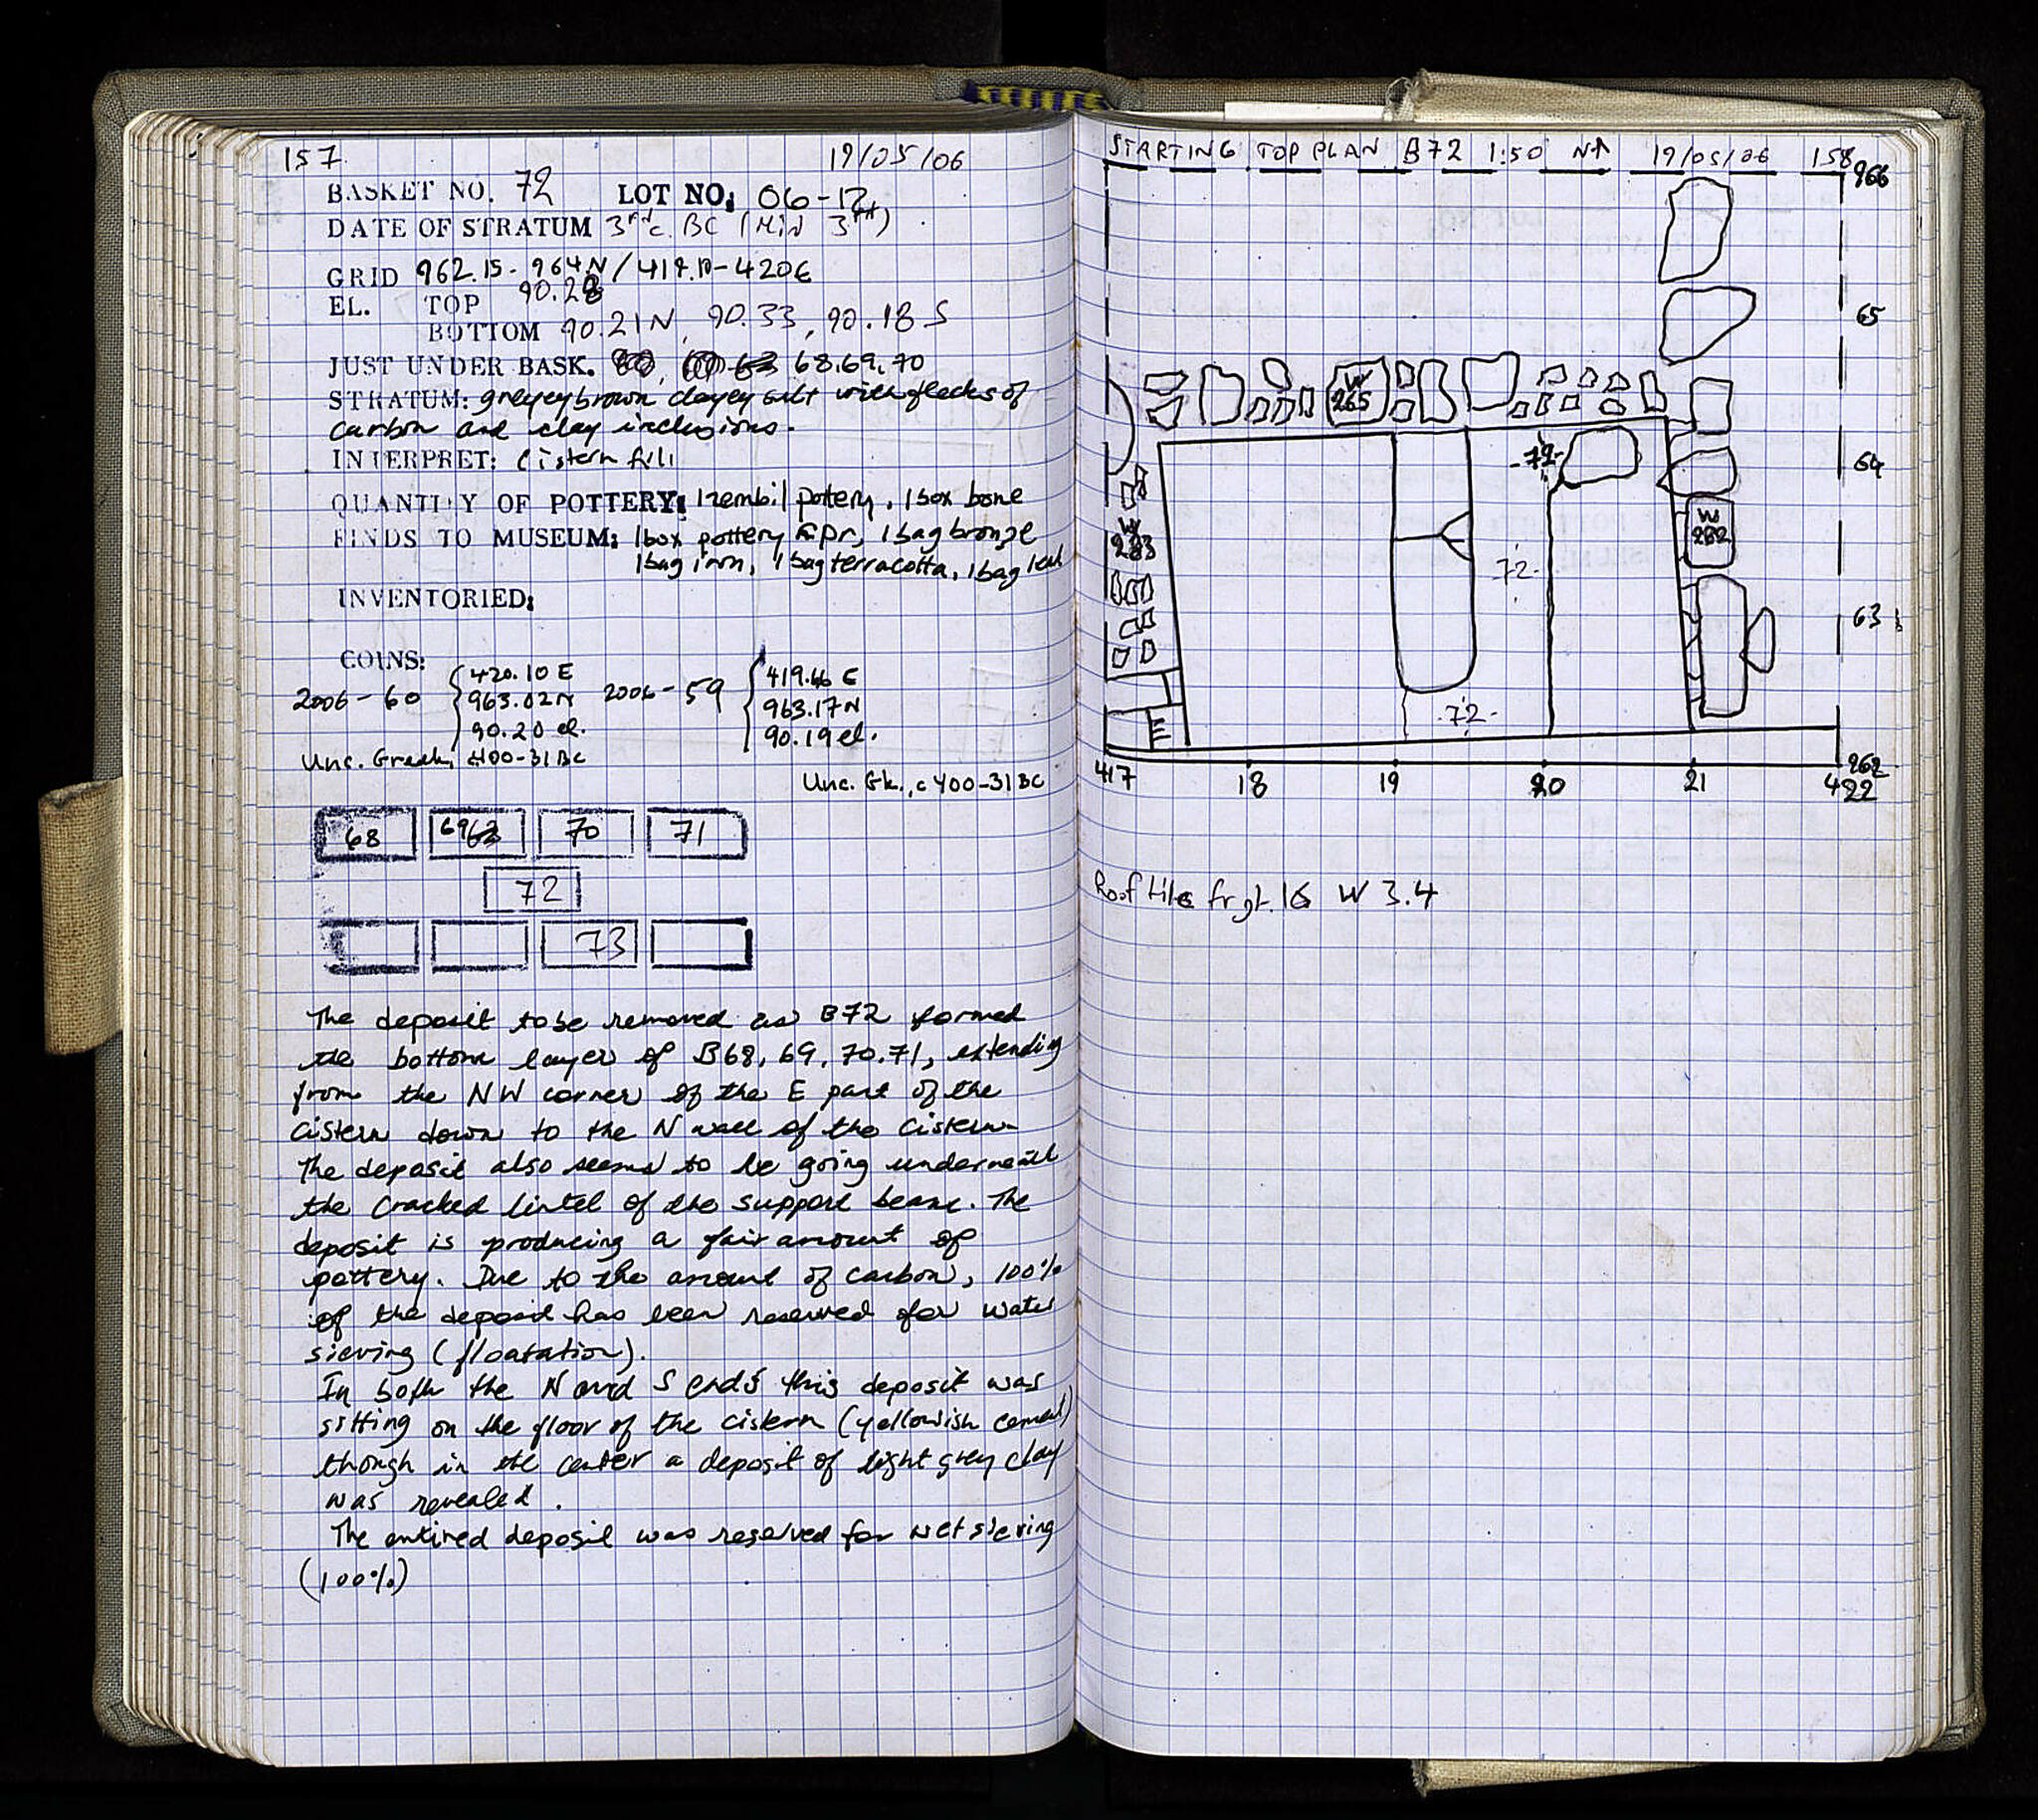 157 19/05/06
BASKET NO. 72 LOT NO: 06-12
DATE OF STRATUM 3rd c. BC (Mid 3rd)
GRID 962.15 - 964N / 419.10-420E
EL. TOP 90.28
BOTTOM 90.21N, 90.33, 90.18 S
JUST UNDER BASK. 63 68.69.70
STRATUM: greyey brown clayey silt with flecks of
carbon and clay inclusions.
INTERPRET: Cistern fill
QUANTITY OF POTTERY: 1 zembil pottery, 1 box bone
FINDS TO MUSEUM: 1 box pottery &pr, 1 bag bronze
1 bag iron, 1 bag terracotta, 1 bag lead
INVENTORIED:
COINS:
2006-60 420.10 E 963.02N 90.20 el.
Unc. Greek, 400-31 BC
2006-59 419.46 E 963.17N 90.19 el.
Unc. Gk., c 400-31 BC
68 69 63 70 71
72
73
The deposit to be removed as B72 formed
the bottom layer of B68, 69, 70.71, extending
from the NW corner of the E part of the
cistern down to the N wall of the cistern
The deposit also seems to be going underneath
the cracked lintel of the support beam. The
deposit is producing a fair amount of
pottery. Due to the amount of carbon, 100%
of the deposit has been reserved for water
sieving (floatation).
In both the N and S ends this deposit was
sitting on the floor of the cistern (yellowish cement)
though in the center a deposit of light grey clay
was revealed.
The entired deposit was reserved for wet sieving
(100%)
STARTING TOP PLAN B72 1:50 N↑ 19/05/06 158
966
65
W 265
64
-72-
W 283
W 282
72-
63
72-
262
417 18 19 20 21 422
Roof tiles frgt. 16 W 3.4